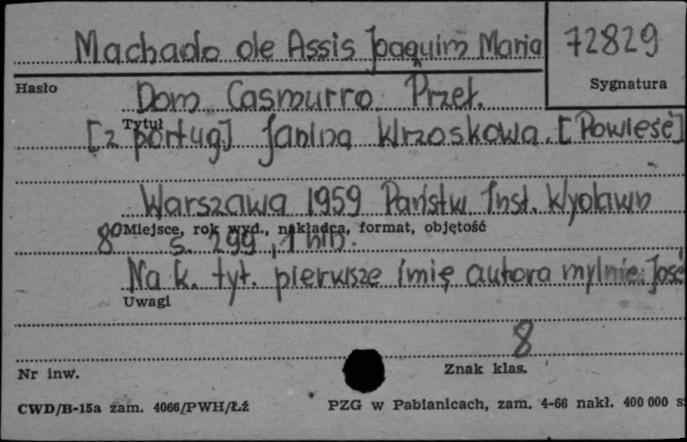 Machado de Assis Joaquim Maria 72829
Hasło Sygnatura
Dom Casmurro. Przeł.
Tytuł
[z portug] Janina Wrzoskowa. [Powieść]
Warszawa 1959 Państw Inst. Wydawn
Miejsce, rok wyd., nakładca, format, objętość
8° s. 299, 1 nlb.
Na k. tyt. pierwsze imię autora mylnie: José
Uwagi
8
Nr inw. Znak klas.
CWD/B-15a zam. 4066/PWH/Łź PZG w Pabianicach, zam. 4-66 nakł. 400 000 s